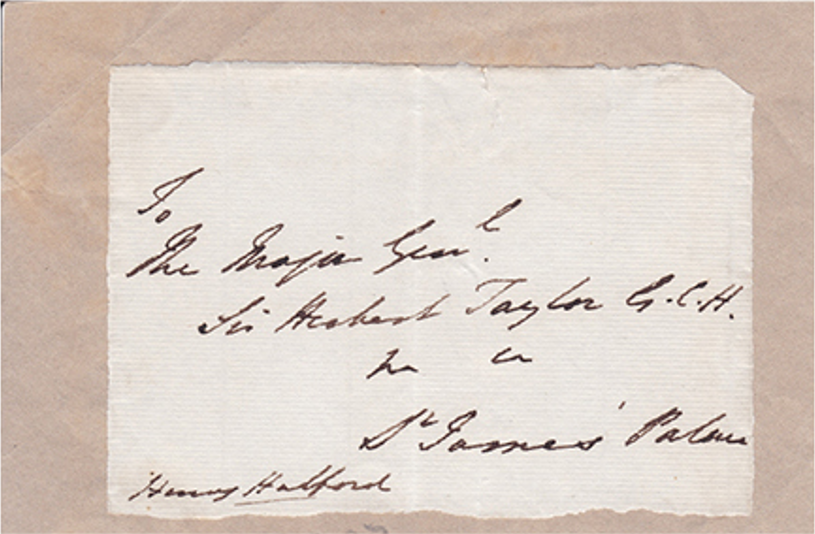 To
The Major Genl.
Sir Herbert Taylor G.C.H.
St James' Palace
Henry Halford